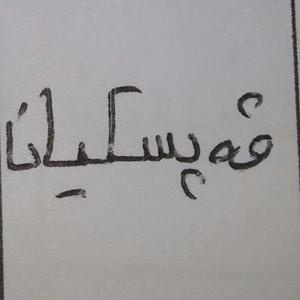 ڤەپسکیانا